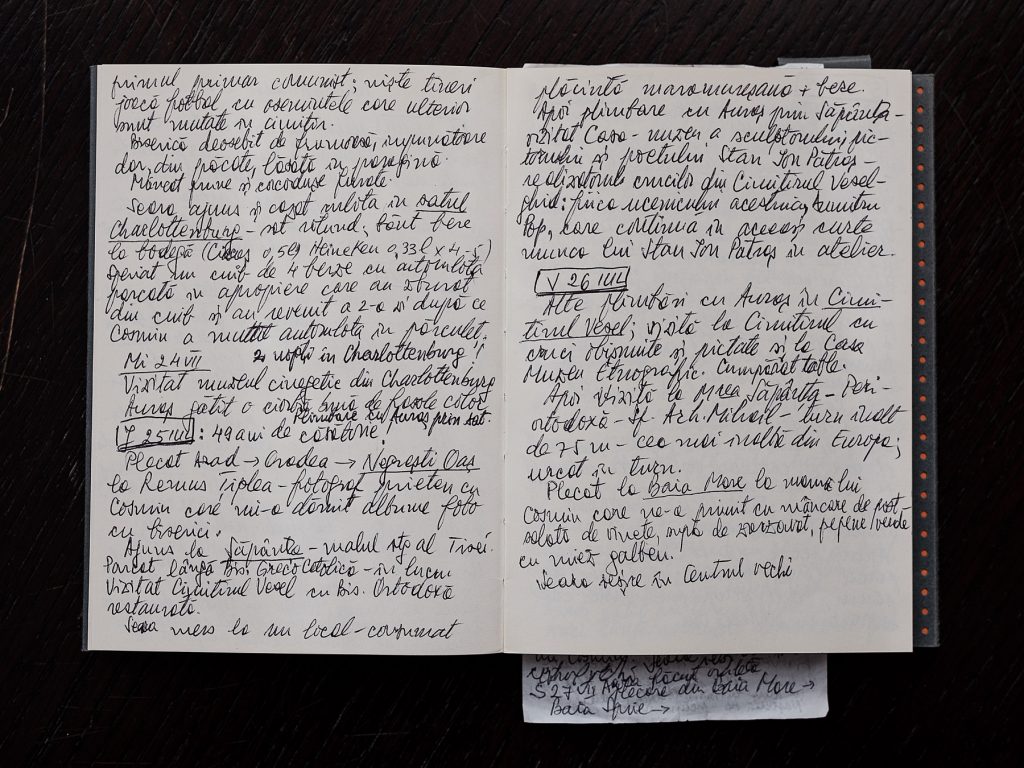 primul primar comunist; niște tineri
joacă fotbal cu osemintele care ulterior
sunt mutate în cimitir.
Biserică deosebit de frumoasă, impunătoare
dar, din păcate, lăsată în paragină.
Mâncat prune și corcodușe furate.
Seara ajuns și cazat rulota în satul
Charlottenburg - sat rotund, băut bere
la bodegă (Ciucaș 0,5 Heineken 0,33 l x 4
Speriat un cuib de 4 berze cu autorulota
parcată în apropiere care au zburat
din cuib și au revenit a 2-a zi după ce
Cosmin a mutat autorulota în părculeț.
Mi 24 VII 2 nopți în Charlottenburg!
Vizitat muzeul cinegetic din Charlottenburg
Auraș gătit o ciorbă bună de fasole
Plimbare cu Auraș prin sat.
J 25 VII: 49 ani de căsătorie!
Plecat Arad → Oradea → Negrești Oaș
la Remus Țiplea - fotograf prieten cu
Cosmin care mi-a dăruit albume foto
cu biserici.
Ajuns la Săpânța - malul stg al Tisei.
Parcat lângă Bis. Greco Catolică - în lucru
Vizitat Cimitirul Vesel cu Bis. Ortodoxă
restaurată.
Seara mers la un local - consumat
plăcintă maramureșană + bere.
Apoi plimbare cu Auraș prin Săpânța -
vizitat Casa - muzeu a sculptorului, pic-
torului și poetului Stan Ion Pătraș -
realizatorul crucilor din Cimitirul Vesel -
ghid: fiica ucenicului acestuia, Dumitru
Pop, care continuă în aceeași curte
munca lui Stan Ion Pătraș în atelier.
V 26 VII
Alte plimbări cu Auraș în Cimi-
tirul Vesel; vizită la Cimitirul cu
cruci obișnuite și pictate și la Casa
Muzeu Etnografic. Cumpărat table.
Apoi vizită la Mrea Săpânța - Peri -
ortodoxă - Sf. Arh. Mihail - turn înalt
de 75 m - cea mai înaltă din Europa;
urcat în turn.
Plecat la Baia Mare la mama lui
Cosmin care ne-a primit cu mâncare de post -
salată de vinete, supă de zarzavat, pepene verde
cu miez galben.
Seara ieșire în Centrul vechi
Seara
Auraș făcut omletă
S 27 VII plecare din Baia Mare →
Baia Sprie →